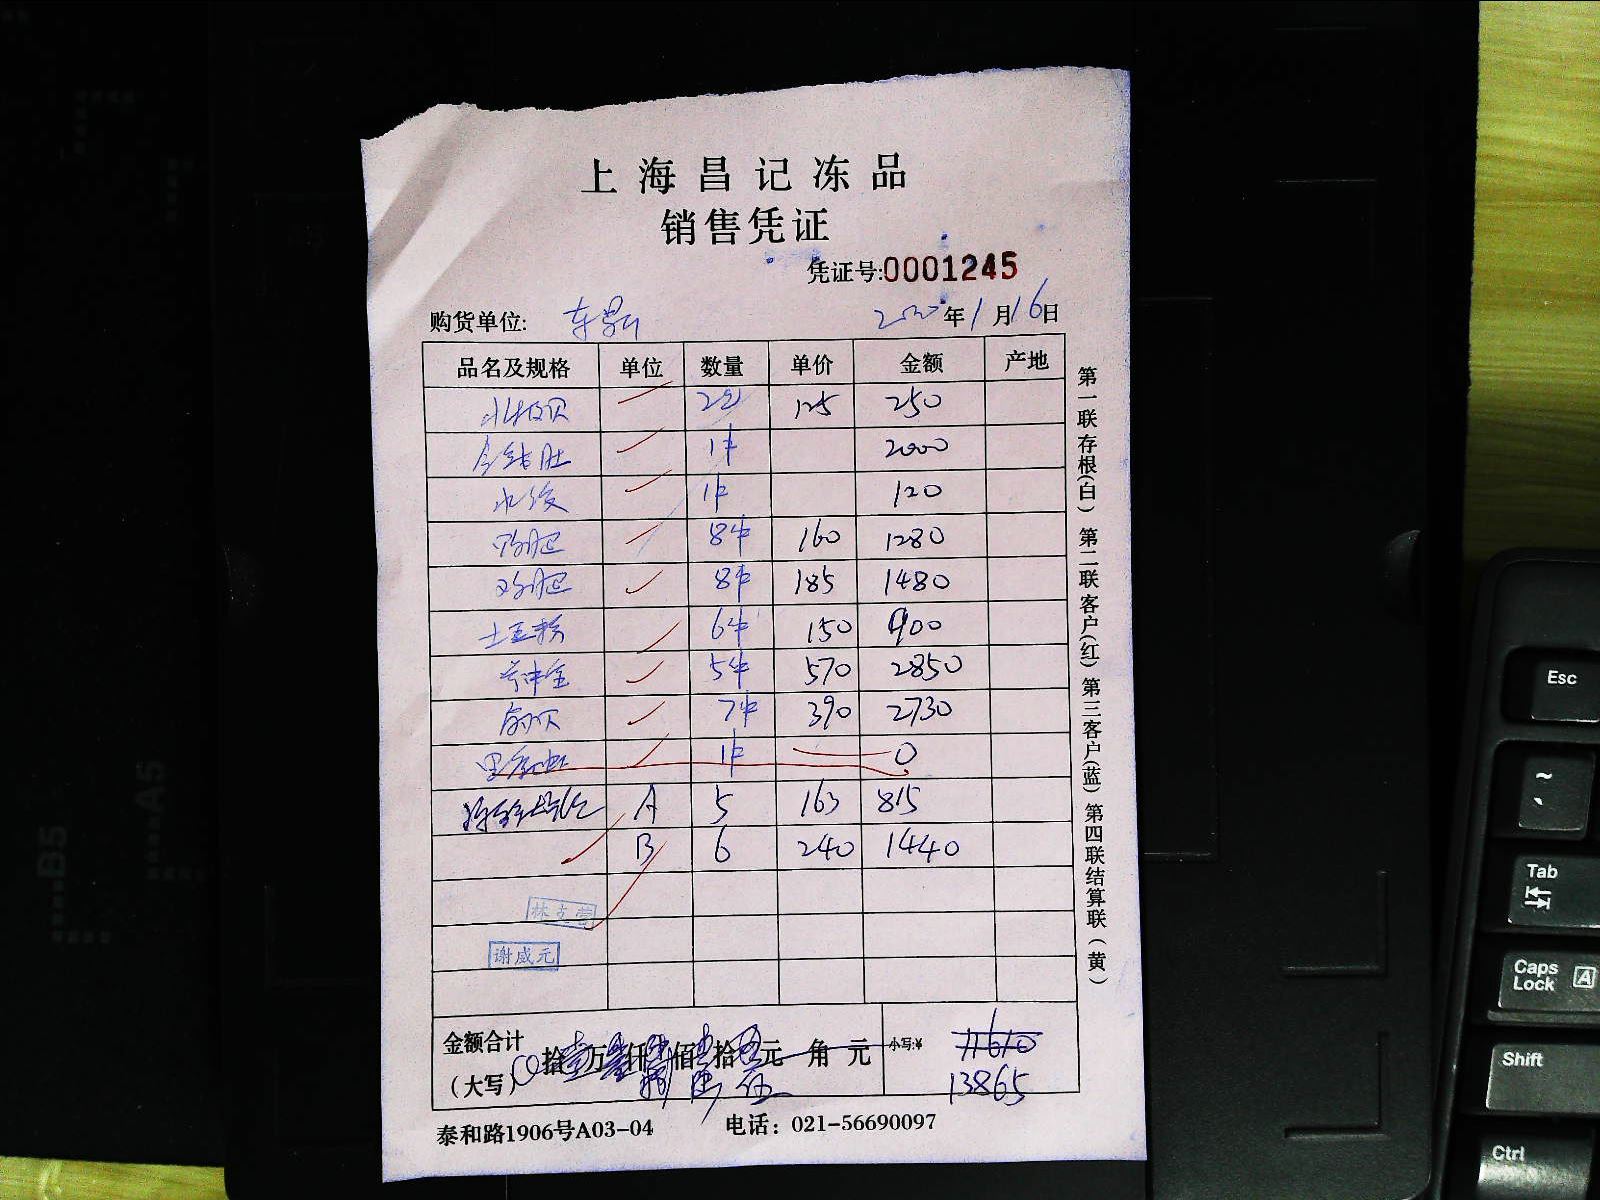 上海昌记冻品
销售凭证
凭证号:0001245
购货单位: 年1月16日
品名及规格 单位 数量 单价 金额 产地
125 250
1件 2000
1件 120
8件 160 1280
8件 185 1480
土豆粉 6件 150 900
5件 570 2850
7件 390 2730
1件 0
A 5 163 815
B 6 240 1440
林支营
谢威元
金额合计
(大写) 拾 万 仟 佰 拾 元 角 元 小写:¥ 11610
13865
泰和路1906号A03-04 电话: 021-56690097
第一联存根(白) 第二联客户(红) 第三客户(蓝) 第四联结算联(黄)
B5
A5
Esc
~
Tab
Caps Lock A
Shift
Ctrl